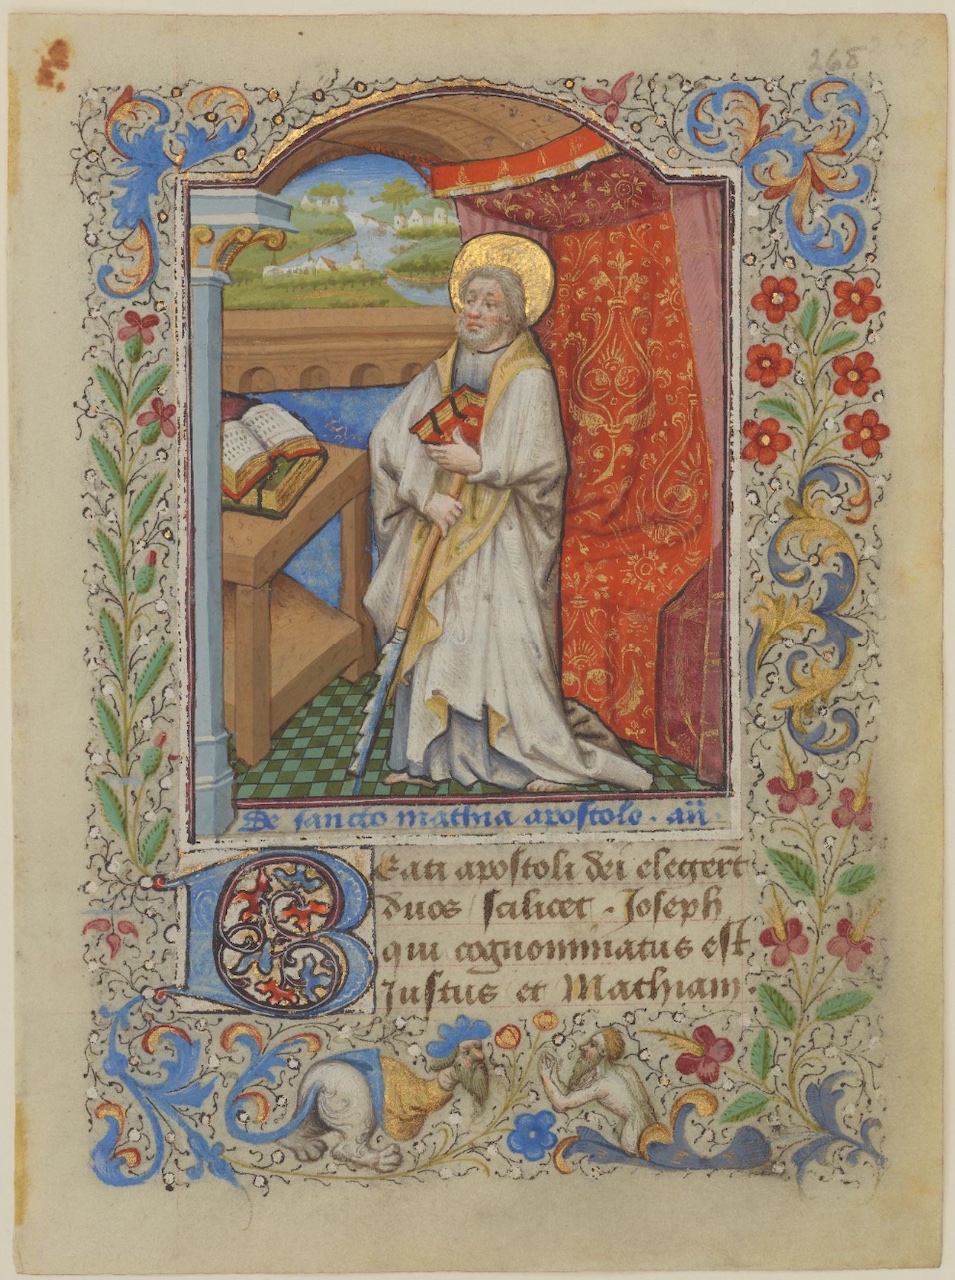 268
De sancto mathia apostolo · añ ·
Beati apostoli dei elegerūt
duos scilicet · Joseph
qui cognominatus est
Justus et Mathiam ·